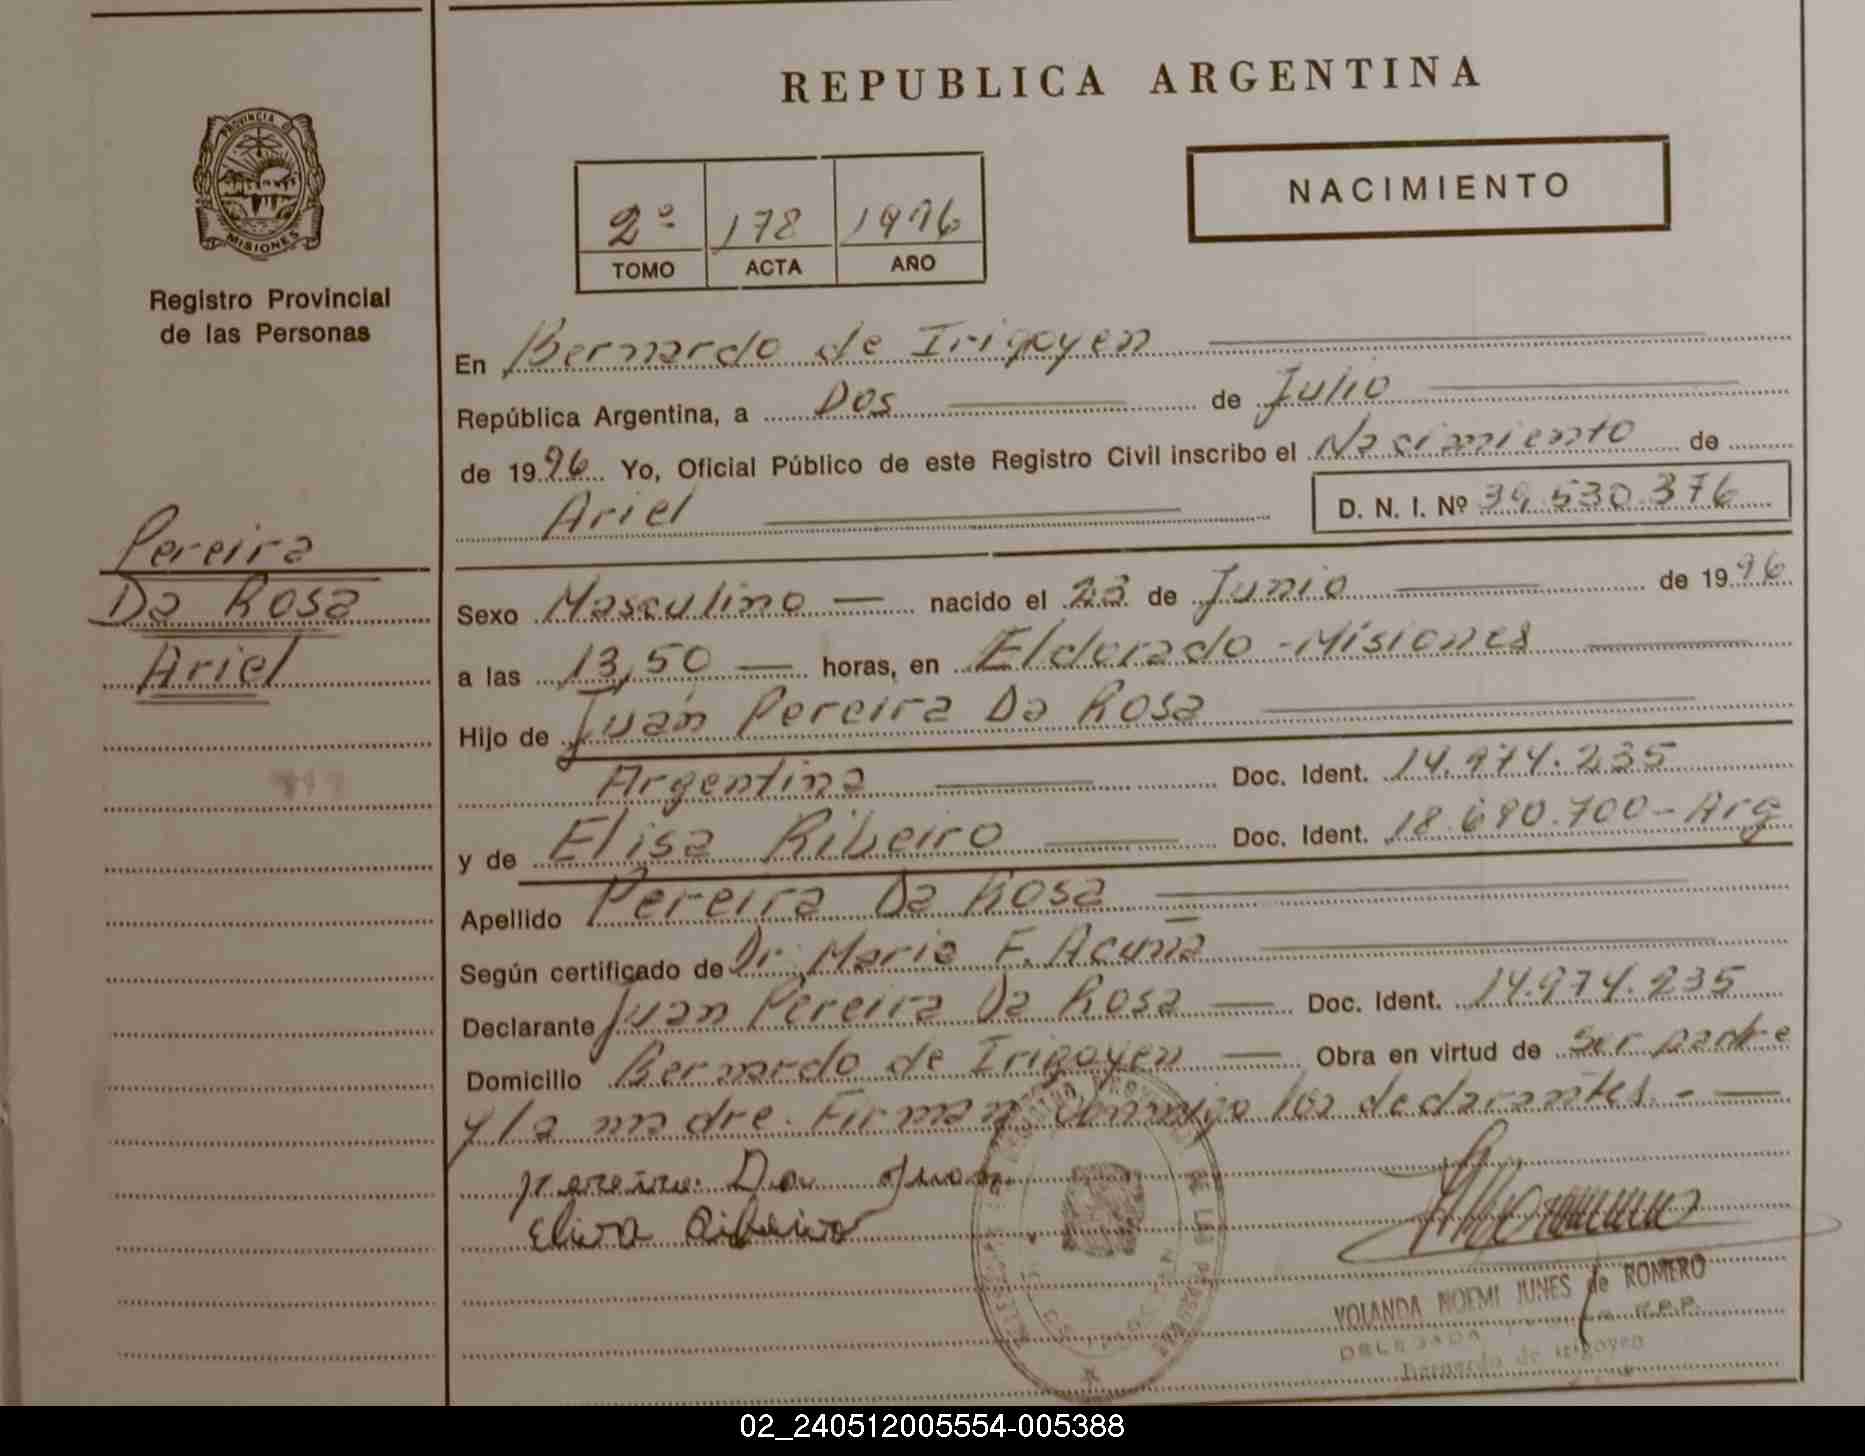 REPUBLICA ARGENTINA
PROVINCIA DE
MISIONES
NACIMIENTO
2º 178 1996
TOMO ACTA AÑO
Registro Provincial
de las Personas
En Bernardo de Irigoyen
República Argentina, a Dos de Julio
de 1996 Yo, Oficial Público de este Registro Civil inscribo el Nacimiento de
Ariel D. N. I. Nº 39.530.376
Pereira
Da Rosa
Ariel
Sexo Masculino — nacido el 23 de Junio de 1996
a las 13,50 — horas, en Eldorado - Misiones
Hijo de Juan Pereira Da Rosa
Argentina Doc. Ident. 14.974.235
y de Elisa Ribeiro Doc. Ident. 18.690.700 - Arg
Apellido Pereira Da Rosa
Según certificado de Dr. Mario F. Acuña
Declarante Juan Pereira Da Rosa — Doc. Ident. 14.974.235
Domicilio Bernardo de Irigoyen — Obra en virtud de ser padre
y la madre. Firman conmigo los declarantes. - —
pereira Da Juan
Elisa Ribeiro
YOLANDA NOEMI JUNES de ROMERO
DELEGADA R.P.P.
Bernardo de Irigoyen
02_240512005554-005388